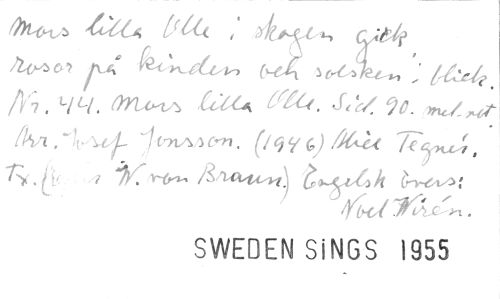 Mors lilla Olle i skogen gick,
rosor på kinden och solsken i blick.
Nr. 44. Mors lilla Olle. Sid. 90. mel.-not.
Arr. Josef Jonsson. (1946) Alice Tegnér.
Tx. W. von Braun.) Engelsk övers:
Noel Wirén.
SWEDEN SiNGS 1955